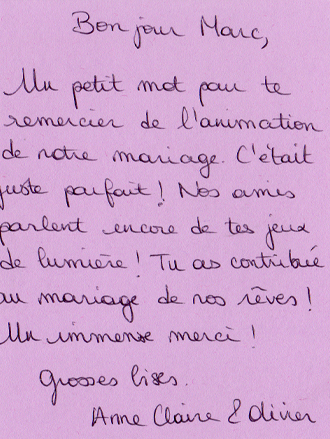 Bonjour Marc,
Un petit mot pour te
remercier de l'animation
de notre mariage. C'était
juste parfait ! Nos amis
parlent encore de tes jeux
de lumière ! Tu as contribué
au mariage de nos rêves !
Un immense merci !
Grosses bises.
Anne Claire & Olivier